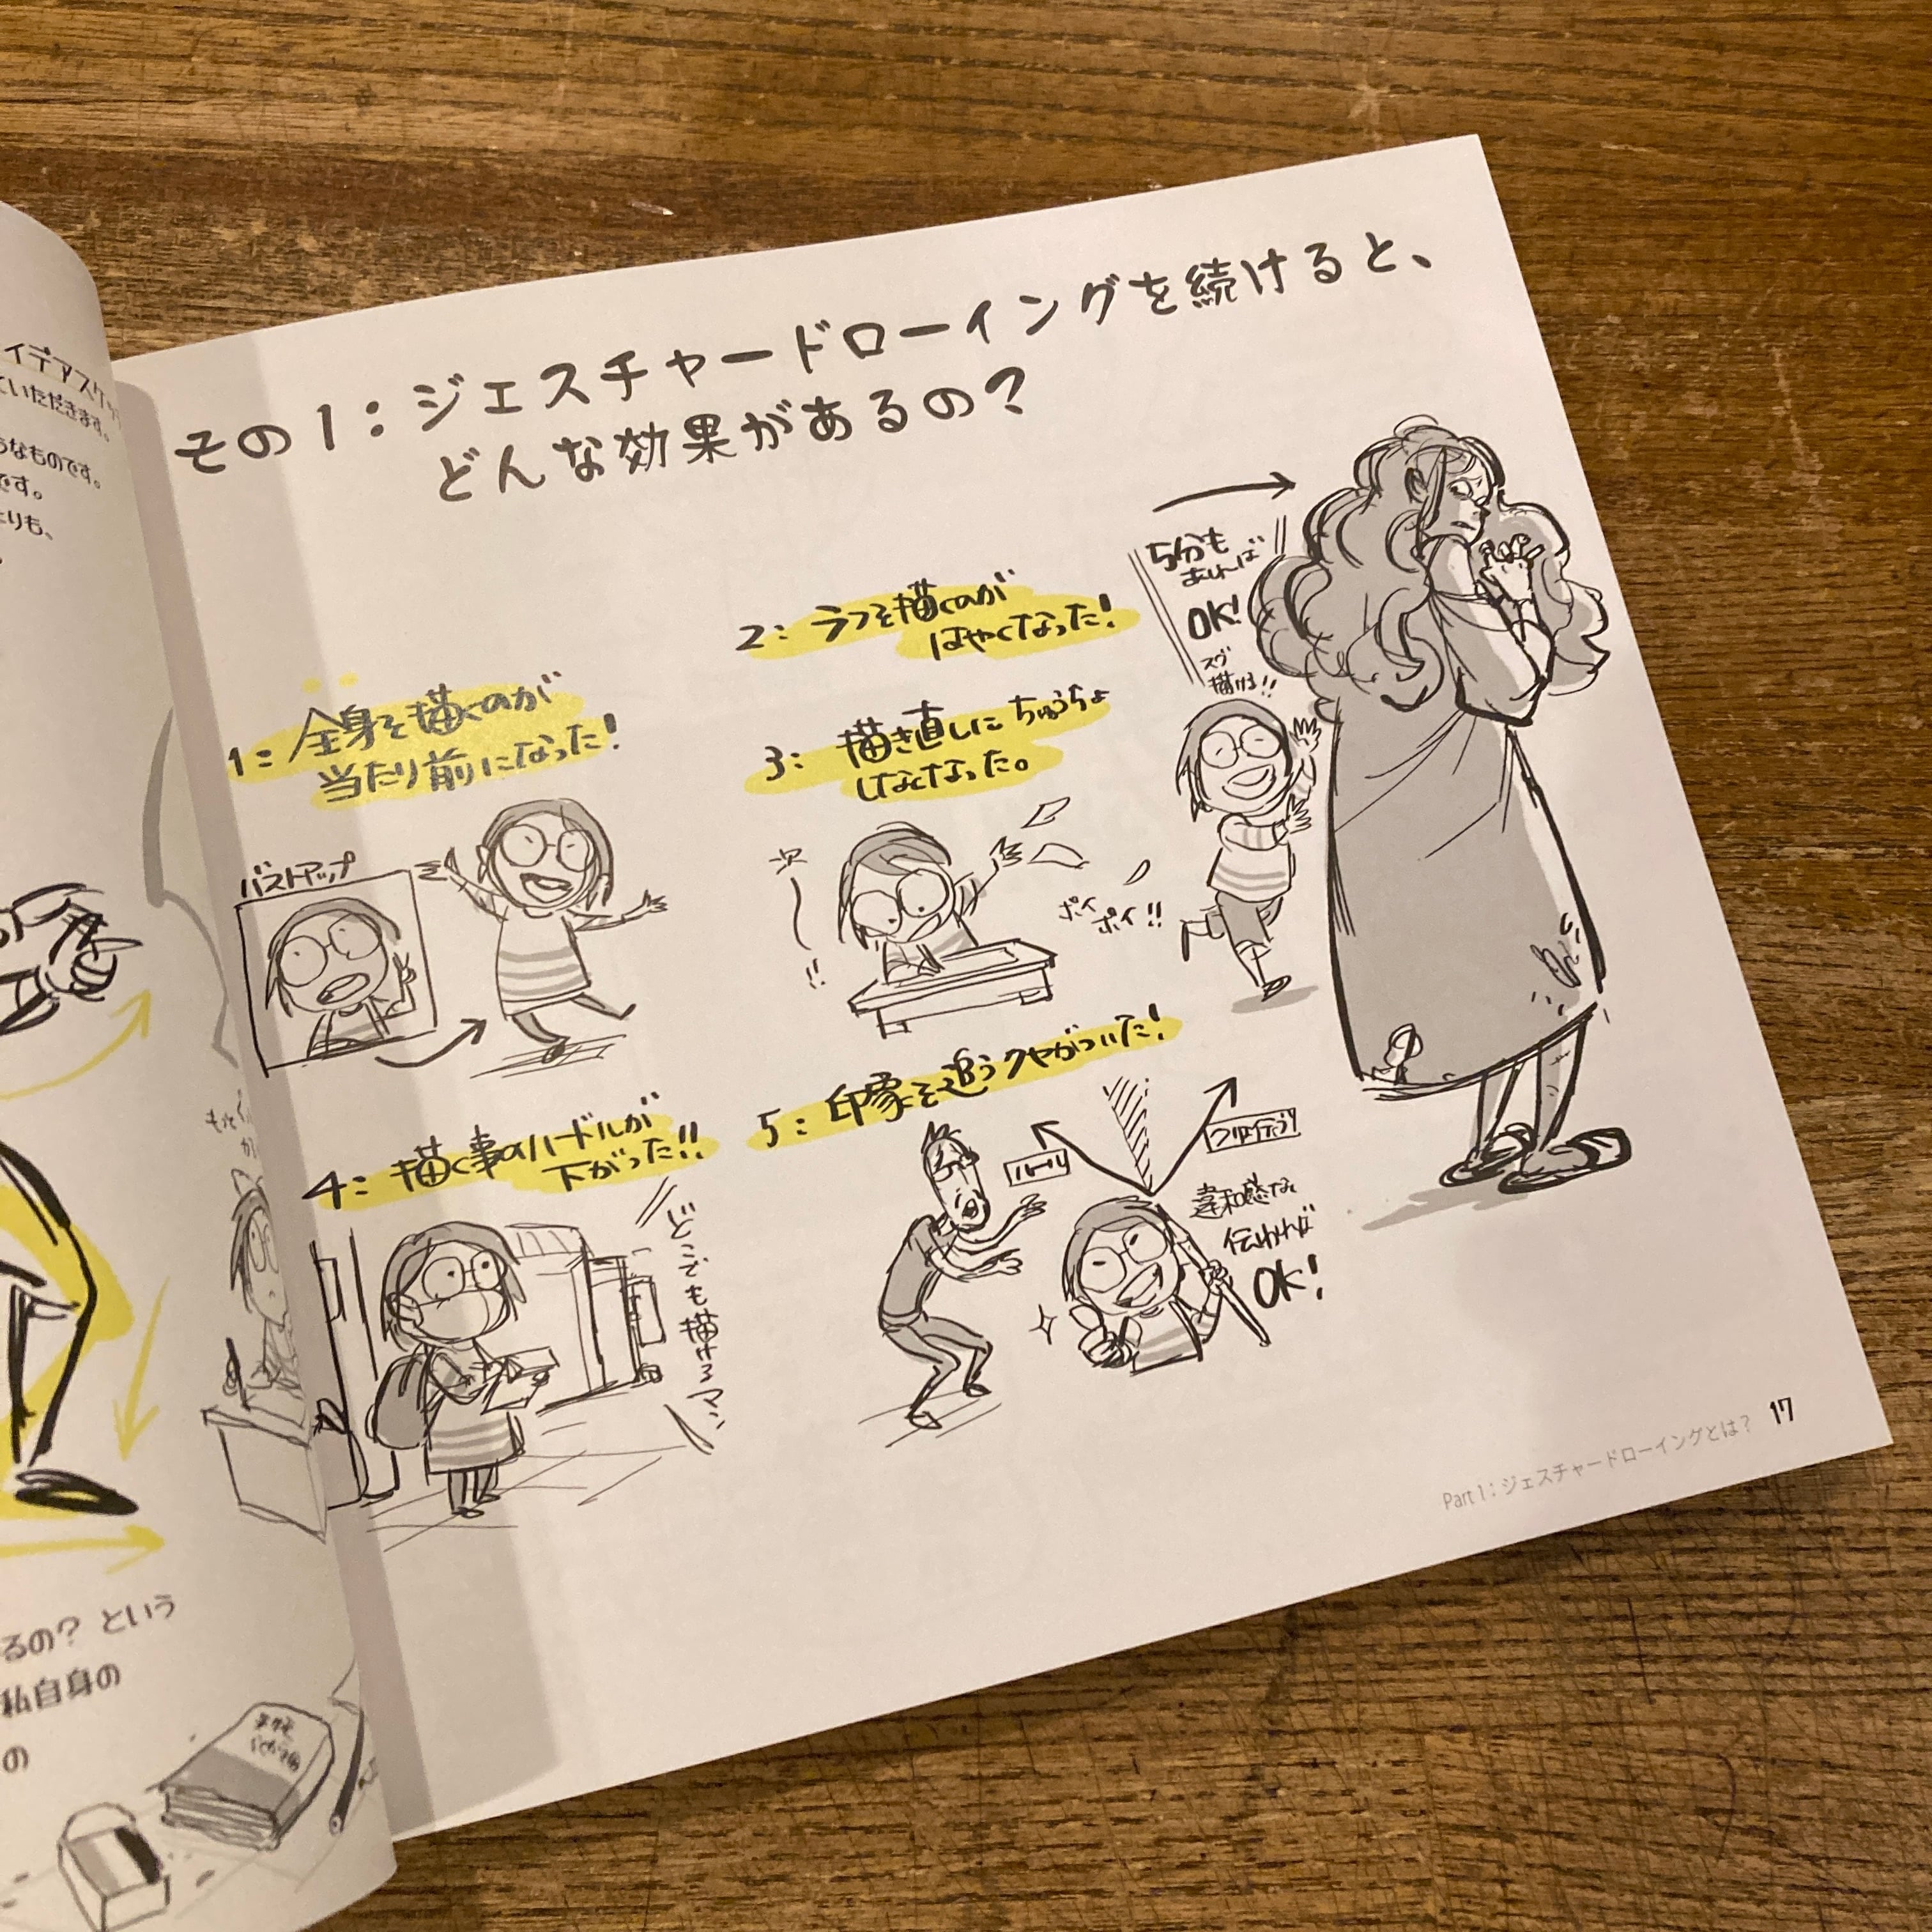 イデアスケッ
ていただきます。
うなものです。
です。
よりも、
るの？ という
私自身の
の
その1：ジェスチャードローイングを続けると、
どんな効果があるの？
1：全身を描くのが
当たり前になった！
バストアップ
2：ラフを描くのが
はやくなった！
5分も
あれば
OK！
スグ
描ける!!
3：描き直しにちゅうちょ
しなくなった。
次
!!
ポイ
ポイ!!
4：描く事のハードルが
下がった!!
どこでも描けるマン
5：印象を追うクセがついた！
ルール
違和感なく
伝われば
OK！
Part 1：ジェスチャードローイングとは？ 17